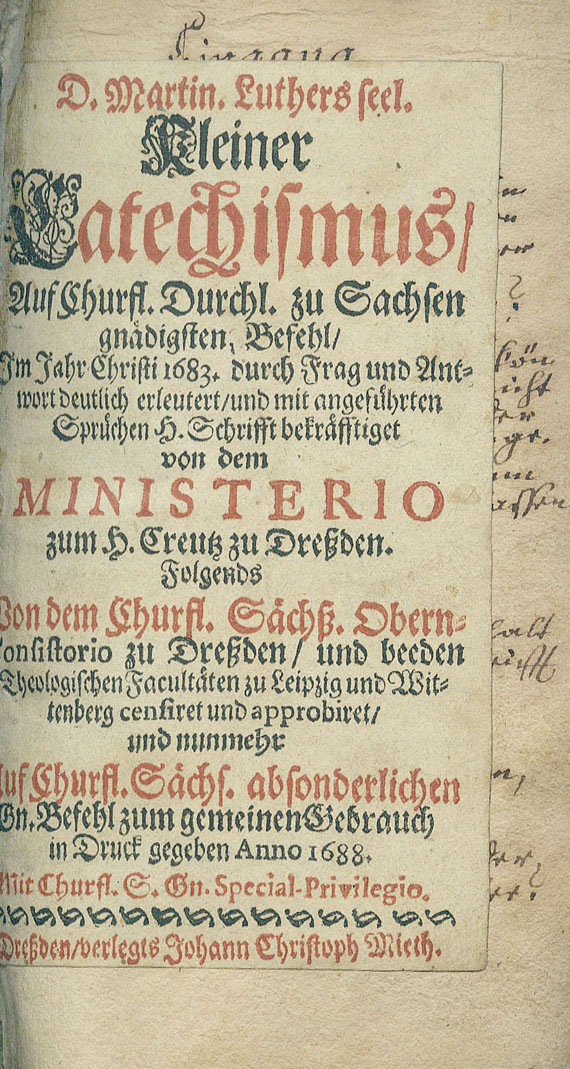 Eingang
D. Martin. Luthers seel.
Kleiner
Catechismus/
Auf Churfl. Durchl. zu Sachsen
gnädigsten, Befehl/
Im Jahr Christi 1683. durch Frag und Ant-
wort deutlich erleutert/und mit angeführten
Sprüchen H. Schrifft bekräfftiget
von dem
MINISTERIO
zum H. Creutz zu Dreßden.
Folgends
Von dem Churfl. Sächß. Obern-
Consistorio zu Dreßden/ und beeden
Theologischen Facultäten zu Leipzig und Wit-
tenberg censiret und approbiret/
und nunmehr
Auf Churfl. Sächs. absonderlichen
Gn. Befehl zum gemeinen Gebrauch
in Druck gegeben Anno 1688.
Mit Churfl. S. Gn. Special-Privilegio.
Dreßden/verlegts Johann Christoph Mieth.